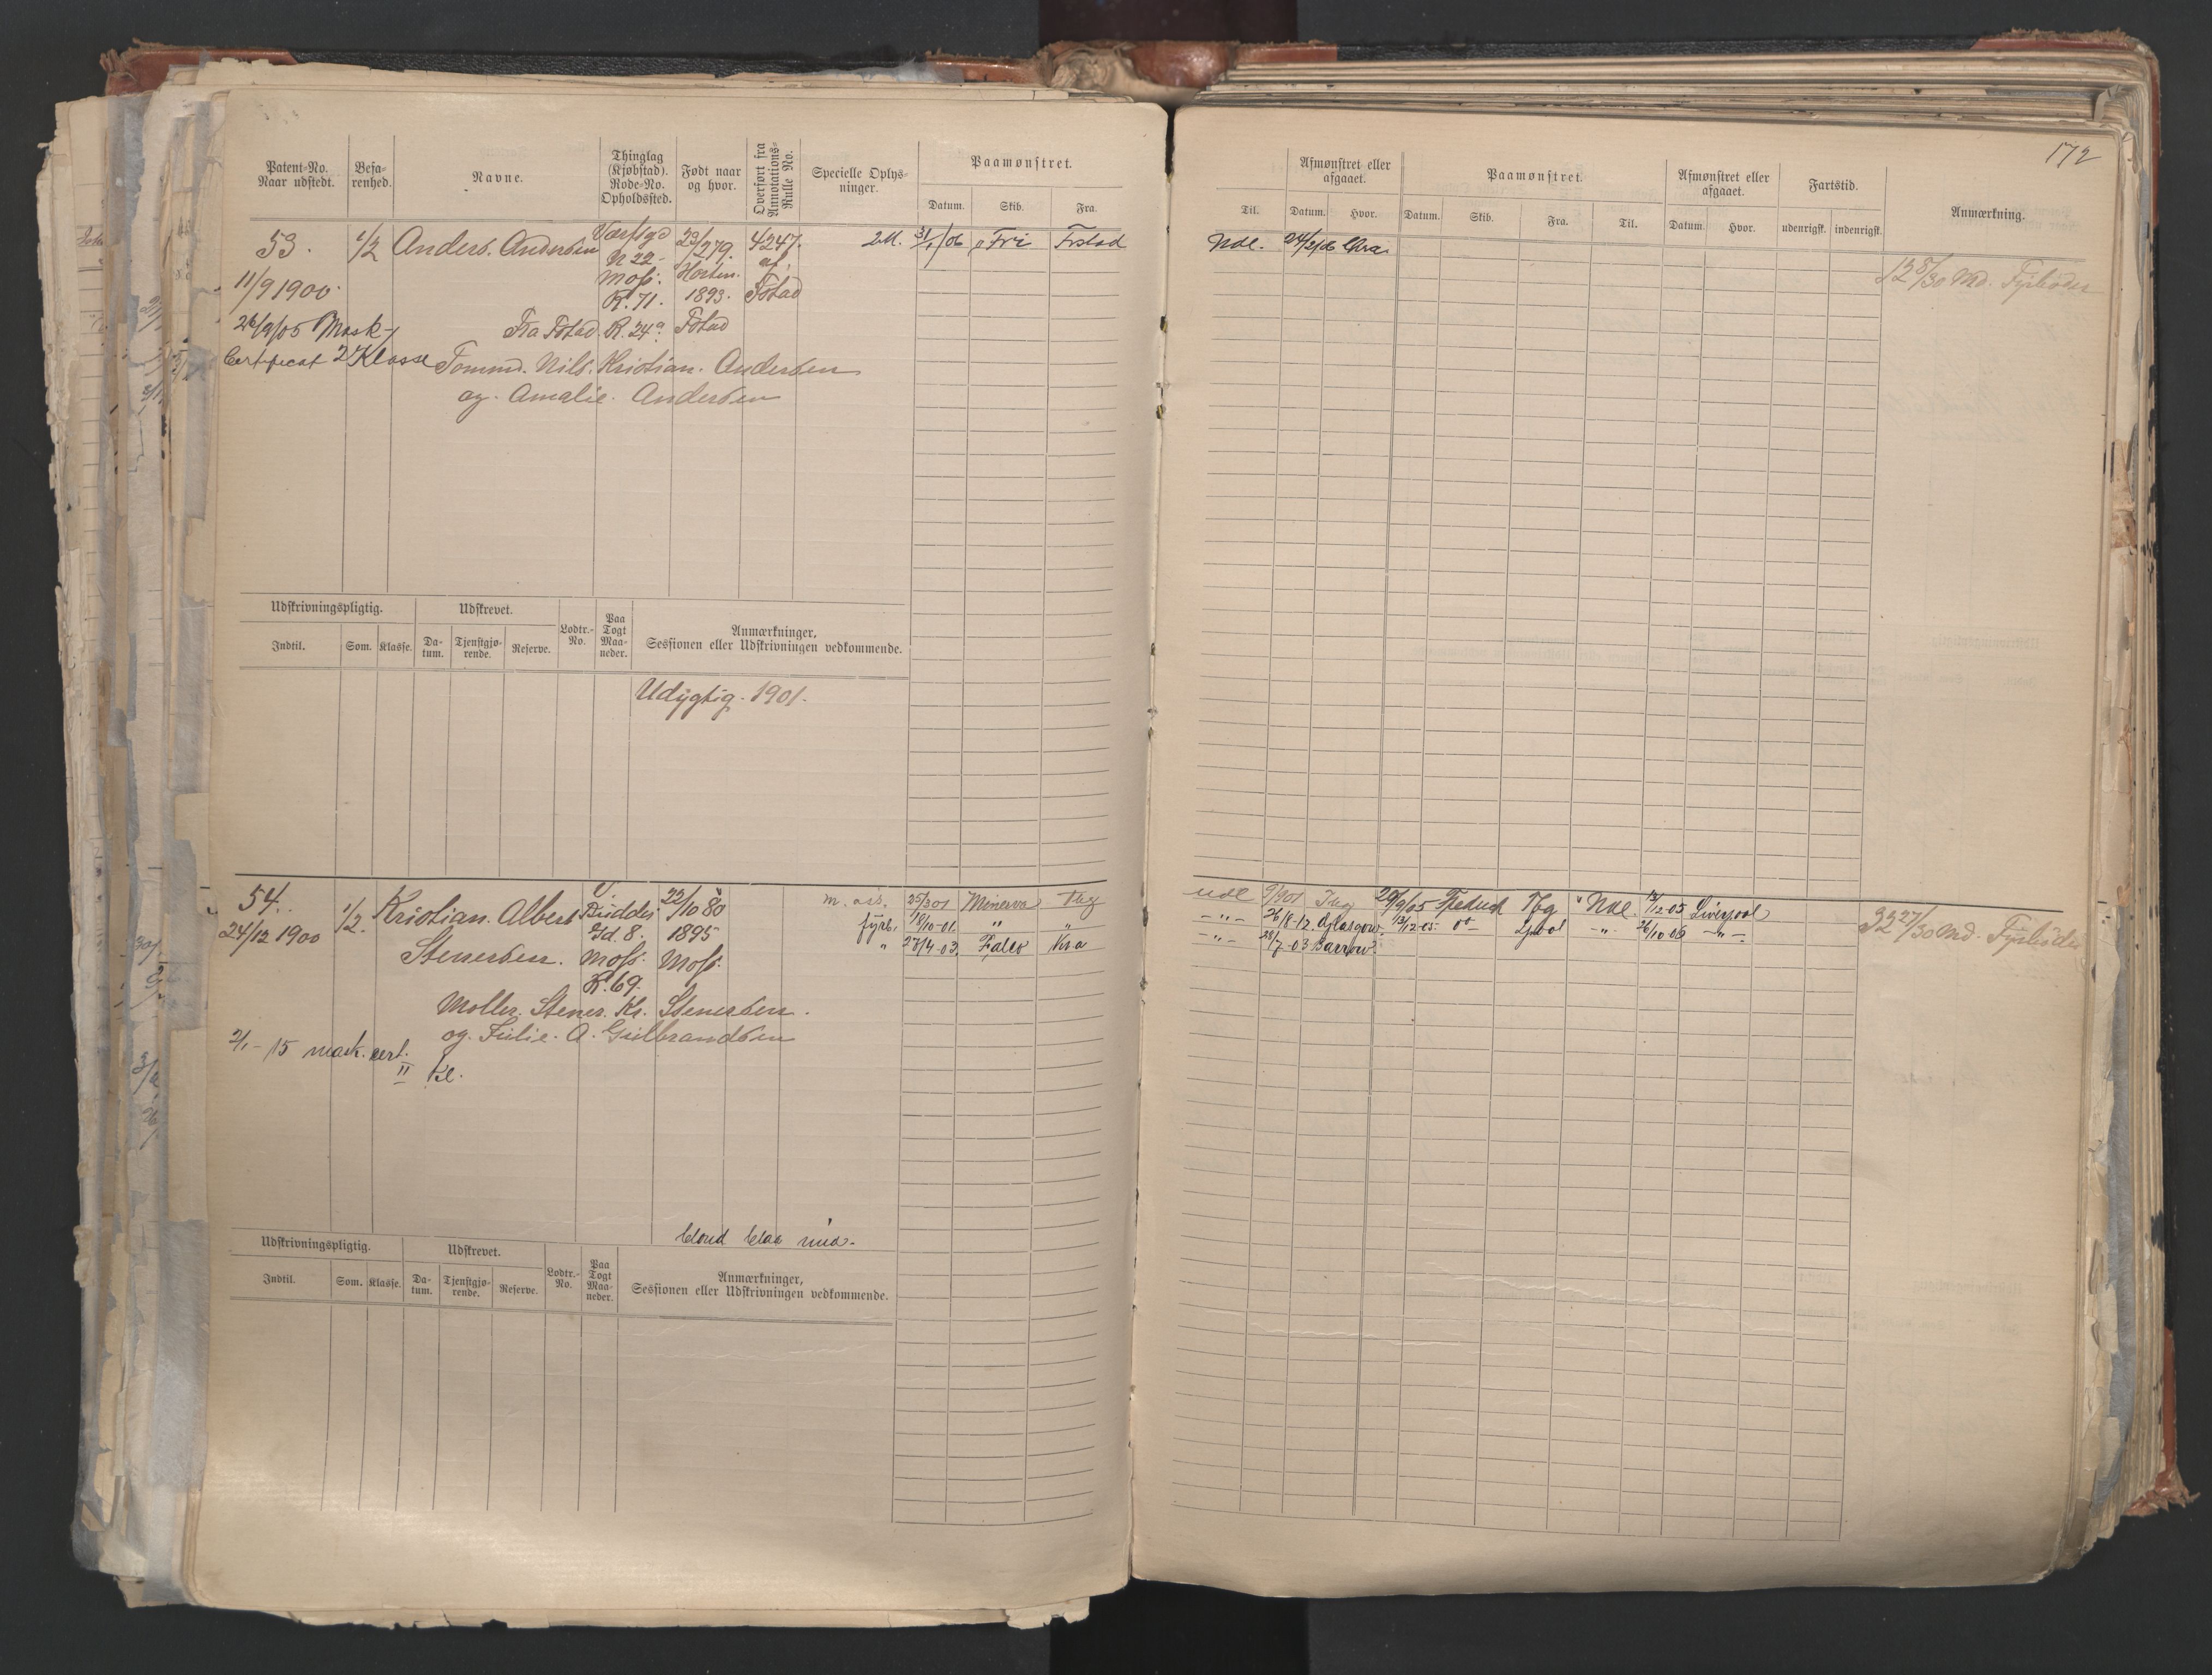 172
Patent-No. Naar udstedt. Befa-renhed. Navne. Thinglag (Kjøbstad). Rode-No. Opholdssted. Født naar og hvor. Overført fra Annotations-Rulle No. Specielle Oplys-ninger. Paamønstret. Datum. Skib. Fra.
Til. Afmønstret eller afgaaet. Datum. Hvor. Paamønstret. Datum. Skib. Fra. Til. Afmønstret eller afgaaet. Datum. Hvor. Fartstid. udenrigsk. indenrigsk. Anmærkning.
53. 1/2 Anders. Andersen 23/2 79. 4247. 2M. 31/1/06 Fri Frstad Udl. 24/2/06 Chra
N 22 - Horten. af.
11/9 1900. Moss. 1893. Fstad
R. 71.
12 8/30 Md. Fyrbøder
26/9/05 Mask- Fra Fstad. R. 24a. Fstad
Certificat 2 Klasse Tømmd. Nils. Kristian. Andersen
og. Amalie. Andersen
Udskrivningspligtig. Udskrevet. Lodtr.-No. Paa Togt Maa-neder. Anmærkninger, Sessionen eller Udskrivningen vedkommende.
Indtil. Som. Klasse. Da-tum. Tjenstgjø-rende. Reserve.
Udygtig. 1901.
54. 1/2. Kristian. Albert 22/10 80 m. ass. 25/3 01 Minerva Tbg udl 9/901 29/9/05 Tbg Udl. 12/12-05 Liverpool
24/12 1900 Gd. 8. 1895 fyrb. 18/10-01. " " -"- 26/8-12. Glasgow. 13/12-05. do - Lpool -"- 26/10-06 -"-
Stenersen. Moss. Moss. " 27/4-03. Falco Kra -"- 28/7-03 Barrow.
R. 69.
32 27/30 Md. Fyrbøder
Møller. Stener. Kr. Stenersen.
og. Julie. A. Gulbrandsen
2/1 - 15 mask. cert.
II Kl.
blond blaa mid.
Udskrivningspligtig. Udskrevet. Lodtr.-No. Paa Togt Maa-neder. Anmærkninger, Sessionen eller Udskrivningen vedkommende.
Indtil. Som. Klasse. Da-tum. Tjenstgjø-rende. Reserve.